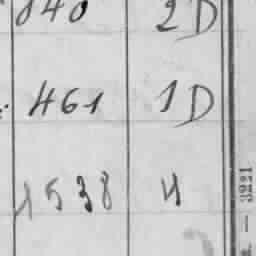 840 2D
461 1D
1538 4
— 3221